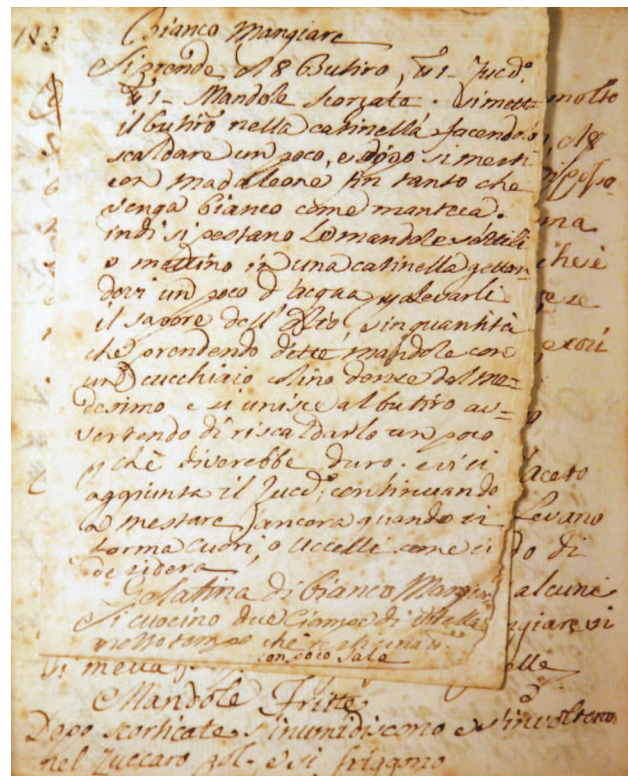 183
Bianco Mangiare
Si prende Butiro, 1 - Zucc.º
1 - Mandole scorzate. Si mett= molto
il butiro nella catinella facendo
scaldare un poco, e dopo si mesti
con madaleone fin tanto che
venga bianco come manteca.
indi si pestano Le mandole sottili ma
e mettino in una catinella getton= che è
dovi un poco d'acqua p levarli
il sapore dell' Olio, in quantità
che prendendo dette mandole con
un cucchiaio colino dense dal me=
desimo e si unisce al butiro av=
vertendo di riscaldarlo un poco
p chè diverebbe duro. e vi si aceto
aggiunta il Zucc.º continuando
a mestare ancora quando si Levano
forma Cuori, o Uccelli come si do di
desidera
Gelatina di Bianco Mangiar alcuni
Si cuocino due Ciampe di Vitella giare si
molto tempo che
con poco Sale
elle
Mandole Fritte
Dopo scorticate s'inumidiscono e s'involtano
nel Zuccaro pol. e si friggono